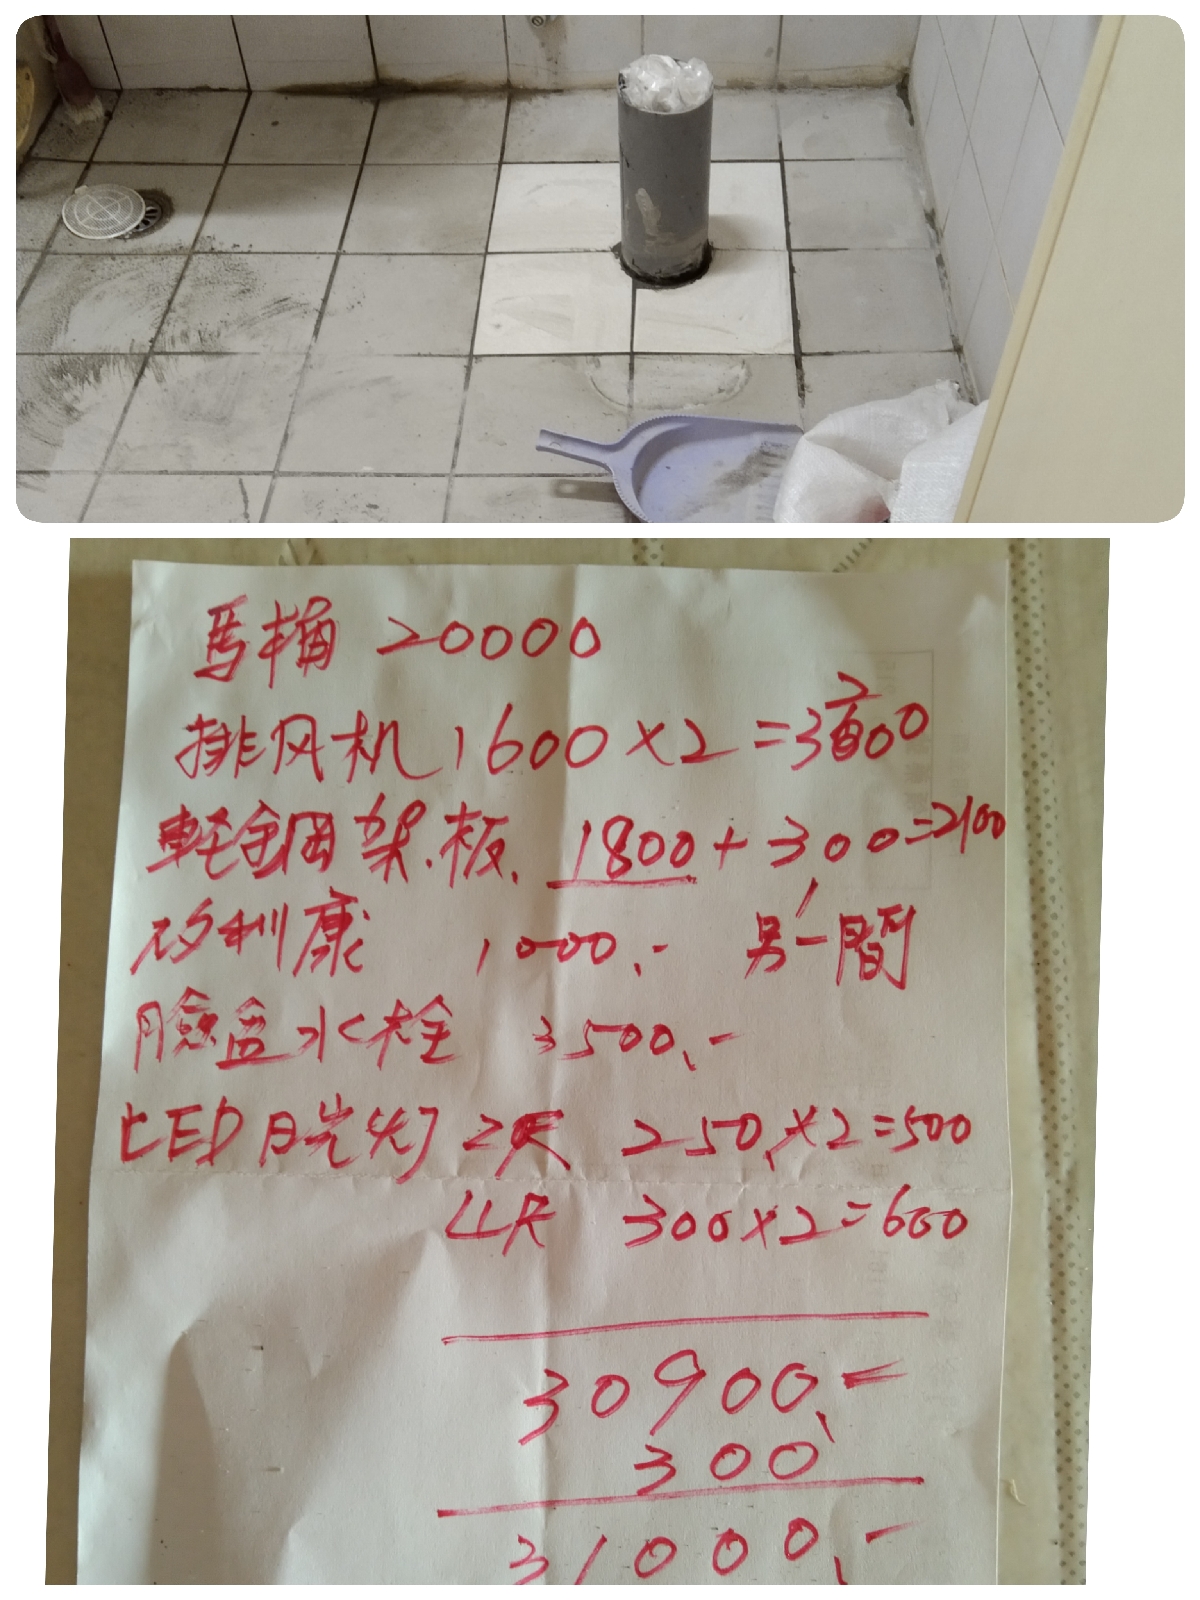 馬桶 20000
排风机 1600×2=3200
軽鋼架.板. 1800+300=2100
矽利康 1000.- 另一間
臉盆水栓 3500.-
LED日光灯 2尺 250×2=500
4尺 300×2=600
30900.-
300
31000.-